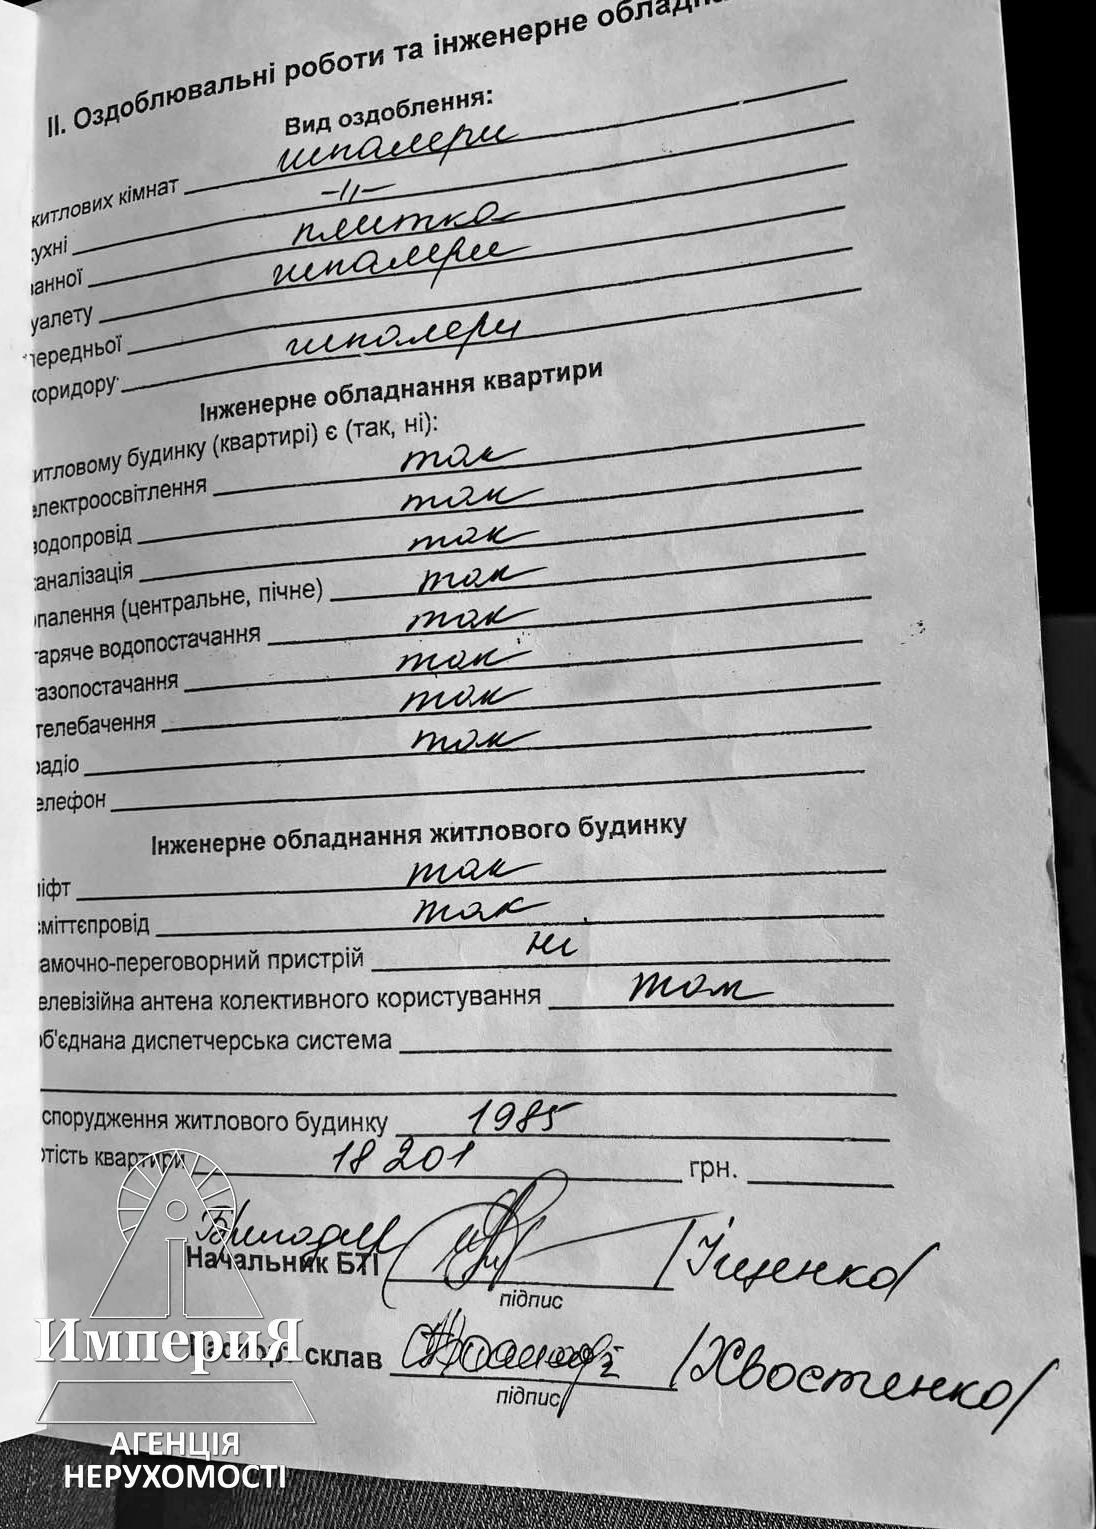 II. Оздоблювальні роботи та інженерне обладна
Вид оздоблення:
житлових кімнат шпалери
кухні -//-
ванної плитка
уалету шпалери
передньої
коридору шпалери
Інженерне обладнання квартири
итловому будинку (квартирі) є (так, ні):
електроосвітлення так
водопровід так
каналізація так
опалення (центральне, пічне) так
гаряче водопостачання так
газопостачання так
телебачення так
радіо так
елефон
Інженерне обладнання житлового будинку
ліфт так
сміттєпровід так
замочно-переговорний пристрій ні
елевізійна антена колективного користування так
об'єднана диспетчерська система
спорудження житлового будинку 1985
ртість квартири 18 201 грн.
Начальник БТІ /Іщенко/
підпис
Паспорт склав /Хвостенко/
підпис
ИмпериЯ
АГЕНЦІЯ
НЕРУХОМОСТІ